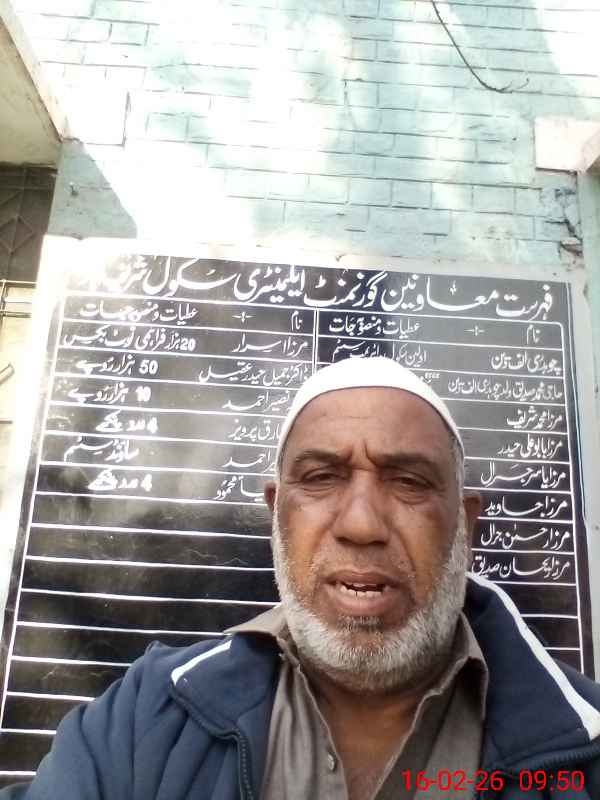 فہرست معاونین گورنمنٹ ایلیمنٹری سکول شریف
نام -:- عطیات و منصوبہ جات
چوہدری الف دین اولین سکول
حاجی محمد صدیق ولد چوہدری الف دین
مرزا محمد شریف
مرزا بابو علی حیدر
مرزا یاسر جرال
مرزا جاوید
مرزا حسن جرال
مرزا ریحان صدیق
نام -:- عطیات و منصوبہ جات
مرزا اسرار 20 ہزار فراہمی نوٹ بکس
ڈاکٹر جمیل حیدر عقیل 50 ہزار روپے
نصیر احمد 10 ہزار روپے
طارق پرویز 4 عدد پنکھے
احمد ساؤنڈ سسٹم
محمود 4 عدد پنکھے
16-02-26 09:50